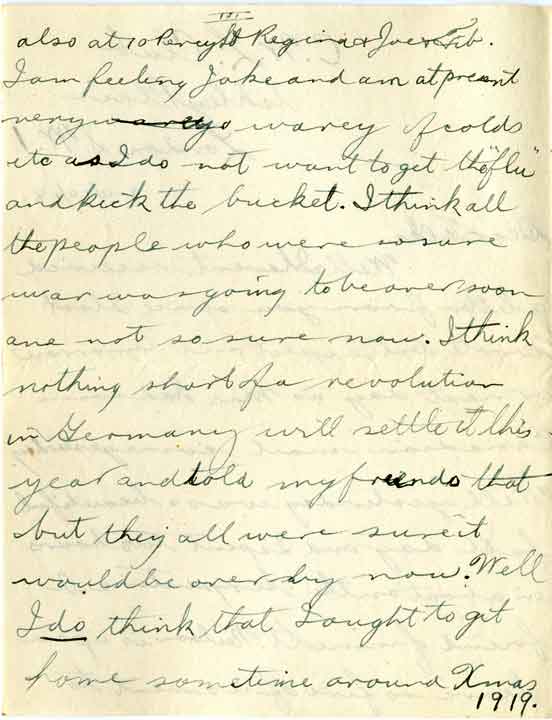 III
also at 10 Percy St Regina & Joe & Feb.
I am feeling Jake and am at present
very warey of colds
etc as I do not want to get the "flu"
and kick the bucket. I think all
the people who were so sure
war was going to be over soon
are not so sure now. I think
nothing short of a revolution
in Germany will settle it this
year and told my friends that
but they all were sure it
would be over by now. Well
I do think that I ought to get
home sometime around Xmas
1919.